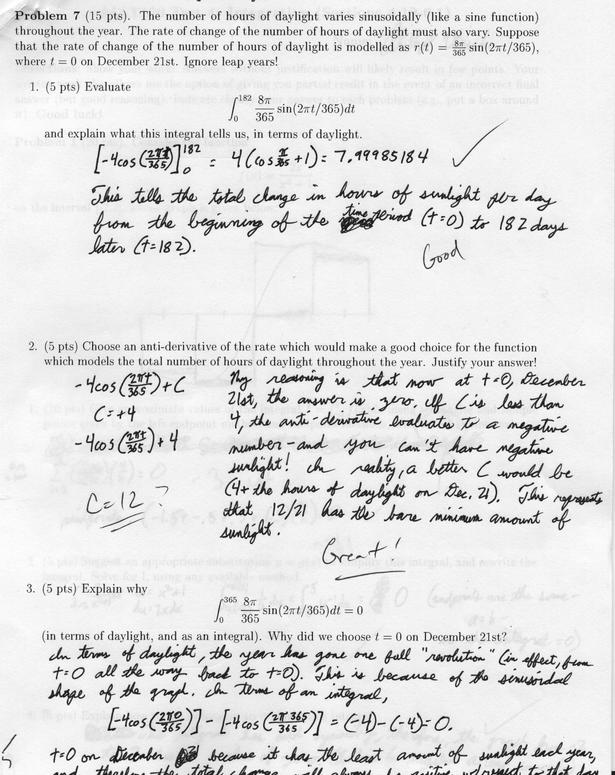 Problem 7 (15 pts). The number of hours of daylight varies sinusoidally (like a sine function)
throughout the year. The rate of change of the number of hours of daylight must also vary. Suppose
that the rate of change of the number of hours of daylight is modelled as r(t) = 8π/365 sin(2πt/365),
where t = 0 on December 21st. Ignore leap years!
1. (5 pts) Evaluate
∫₀¹⁸² 8π/365 sin(2πt/365)dt
and explain what this integral tells us, in terms of daylight.
[-4cos(2πt/365)]₀¹⁸² = 4(cos π/365 +1) = 7.99985184 ✓
This tells the total change in hours of sunlight per day
from the beginning of the time period (t=0) to 182 days
later (t=182).
Good
2. (5 pts) Choose an anti-derivative of the rate which would make a good choice for the function
which models the total number of hours of daylight throughout the year. Justify your answer!
-4cos(2πt/365)+C
C=+4
-4cos(2πt/365)+4
C=12?
My reasoning is that now at t=0, December
21st, the answer is zero, if C is less than
4, the anti-derivative evaluates to a negative
number - and you can't have negative
sunlight! In reality, a better C would be
(4+ the hours of daylight on Dec. 21). This represents
that 12/21 has the bare minimum amount of
sunlight.
Great!
3. (5 pts) Explain why
∫₀³⁶⁵ 8π/365 sin(2πt/365)dt = 0
(in terms of daylight, and as an integral). Why did we choose t = 0 on December 21st?
In terms of daylight, the year has gone one full "revolution" (in effect, from
t=0 all the way back to t=0). This is because of the sinusoidal
shape of the graph. In terms of an integral,
[-4cos(2π0/365)] - [-4cos(2π365/365)] = (-4)-(-4)=0.
t=0 on December because it has the least amount of sunlight each year,
and therefore the total change will always be positive